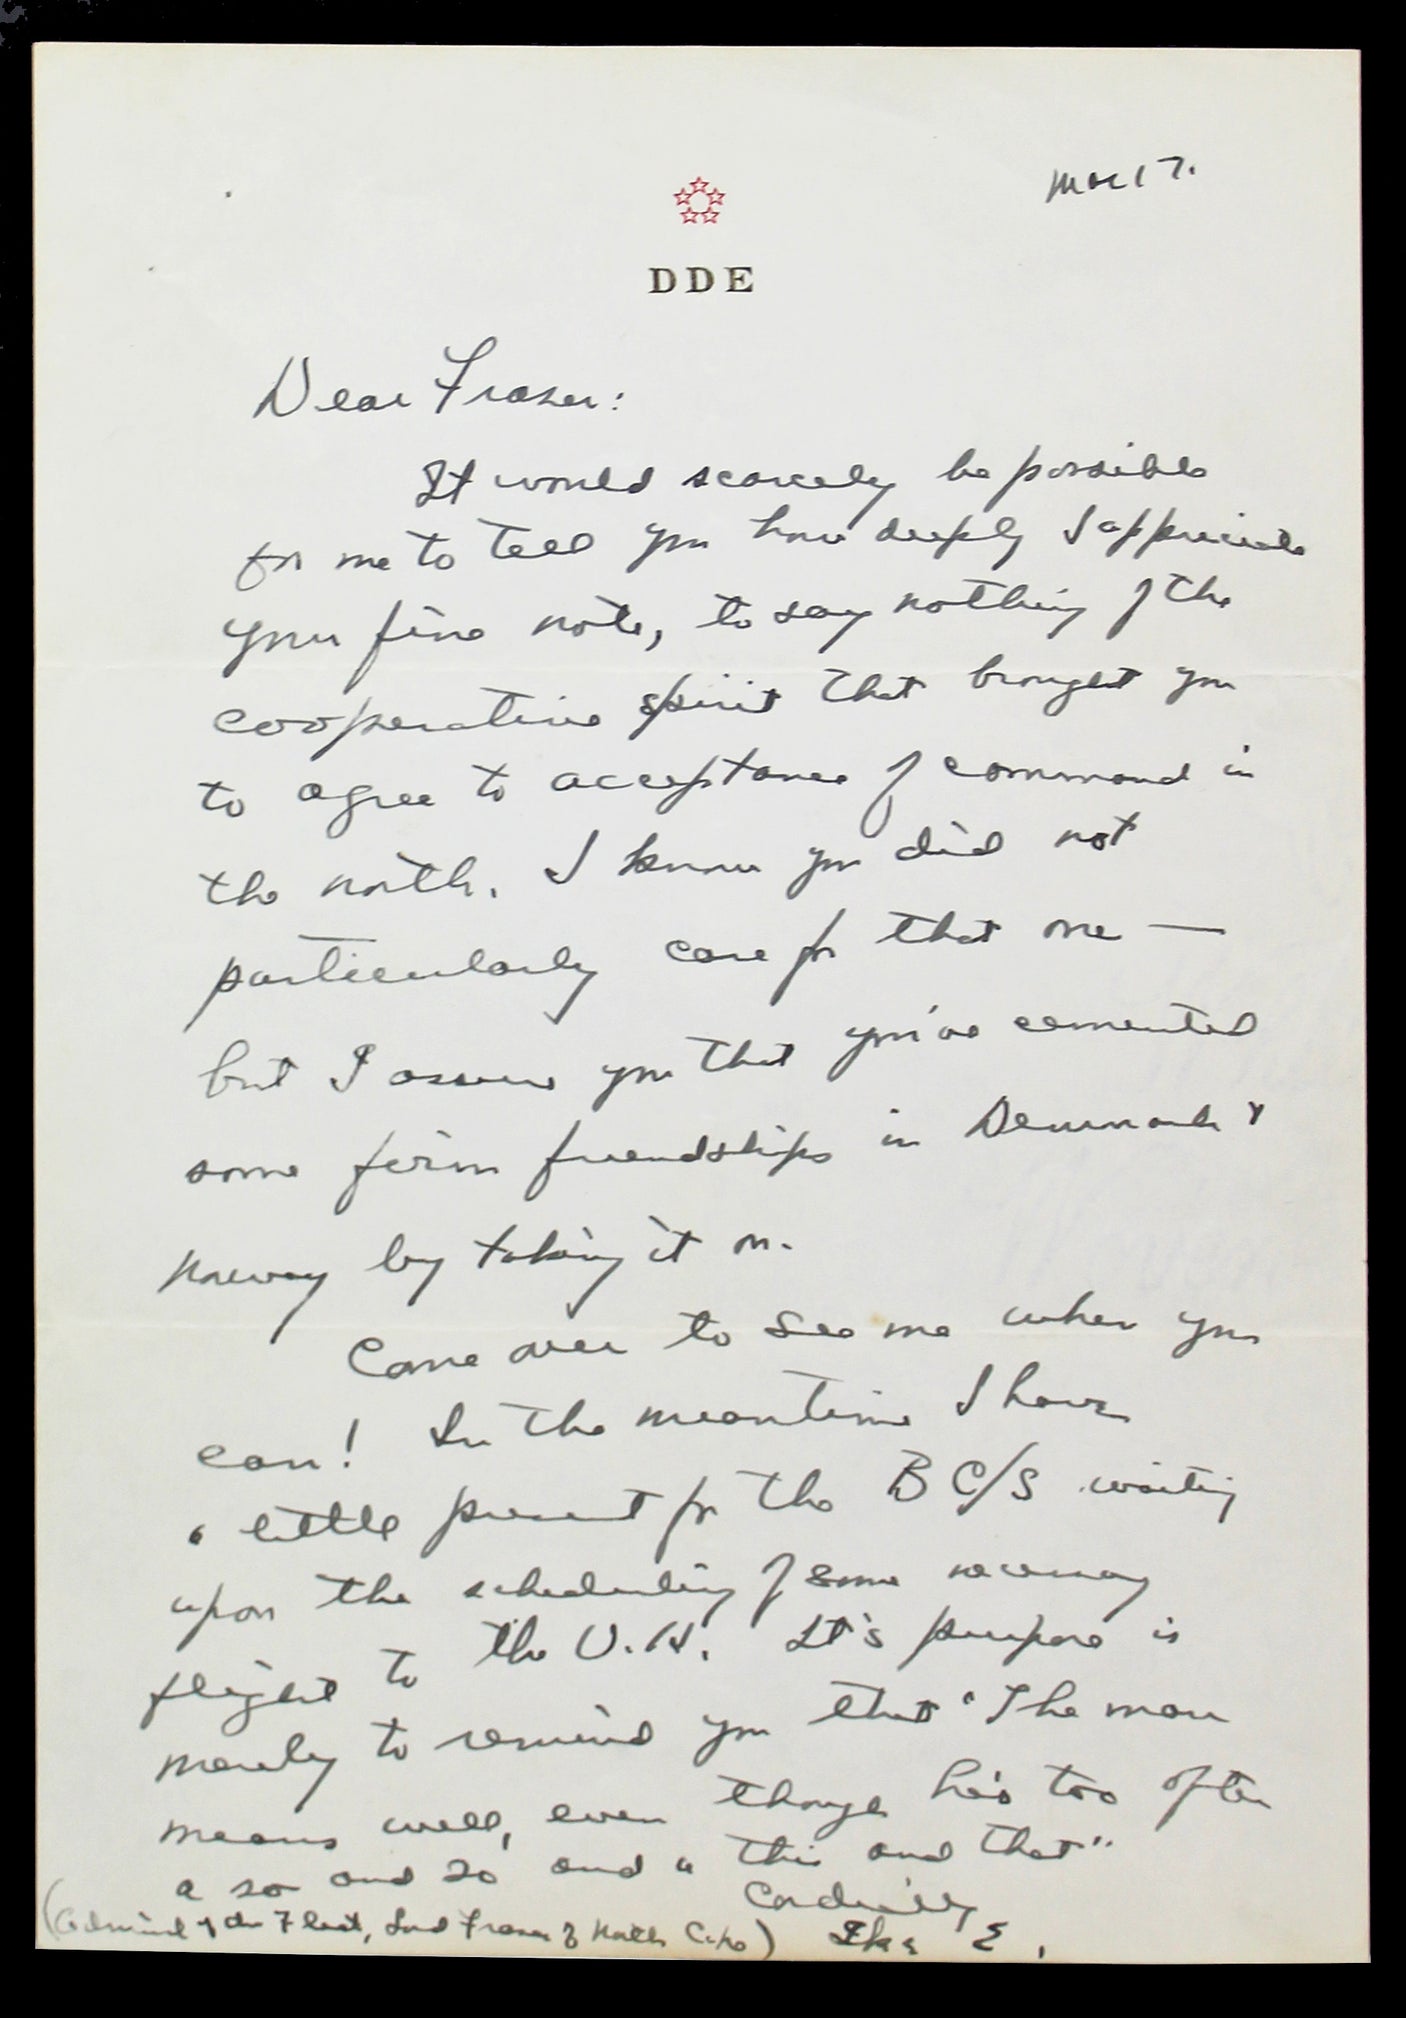 Mar 17.
DDE
Dear Fraser:
It would scarcely be possible
for me to tell you how deeply I appreciate
your fine note, to say nothing of the
cooperative spirit that brought you
to agree to acceptance of command in
the north. I know you did not
particularly care for that one —
but I assure you that you've cemented
some firm friendships in Denmark &
Norway by taking it on.
Come over to see me when you
can! In the meantime I have
a little present for the B C/S waiting
upon the scheduling of some necessary
flight to the U.K. It's purpose is
merely to remind you that "The man
means well, even though he's too often
a so and so and a this and that"
Cordially
(Admiral of the Fleet, Lord Fraser of North Cape) Ike E.